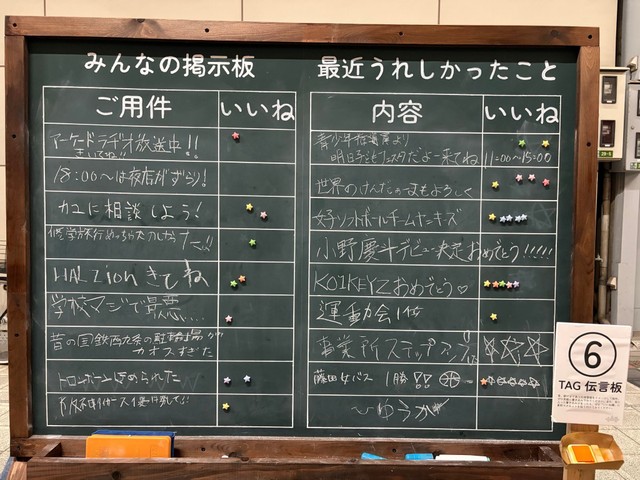 みんなの掲示板
ご用件 いいね
アーケードラヂオ放送中!!
きいてね!!
18:00〜は夜店がずらり!
カユに相談しよう!
修学旅行めっちゃたのしかった
HALZionきてね
学校マジで最悪...
昔の国鉄西九条の駐輪場が
カオスすぎた
トロンボーンほめられた
最近うれしかったこと
内容 いいね
青少年指導員より
明日子どもフェスタだよー来てね 11:00〜15:00
世界のけんたろーまもよろしく
女子ソフトボールチームヤンキーズ
小野慶斗デビュー決定おめでとう!!!!!
KOIKEYZおめでとう♡
運動会1位
事業所ステップアップ
藤田女バス 1勝!!
〜ゆうか
6
TAG 伝言板